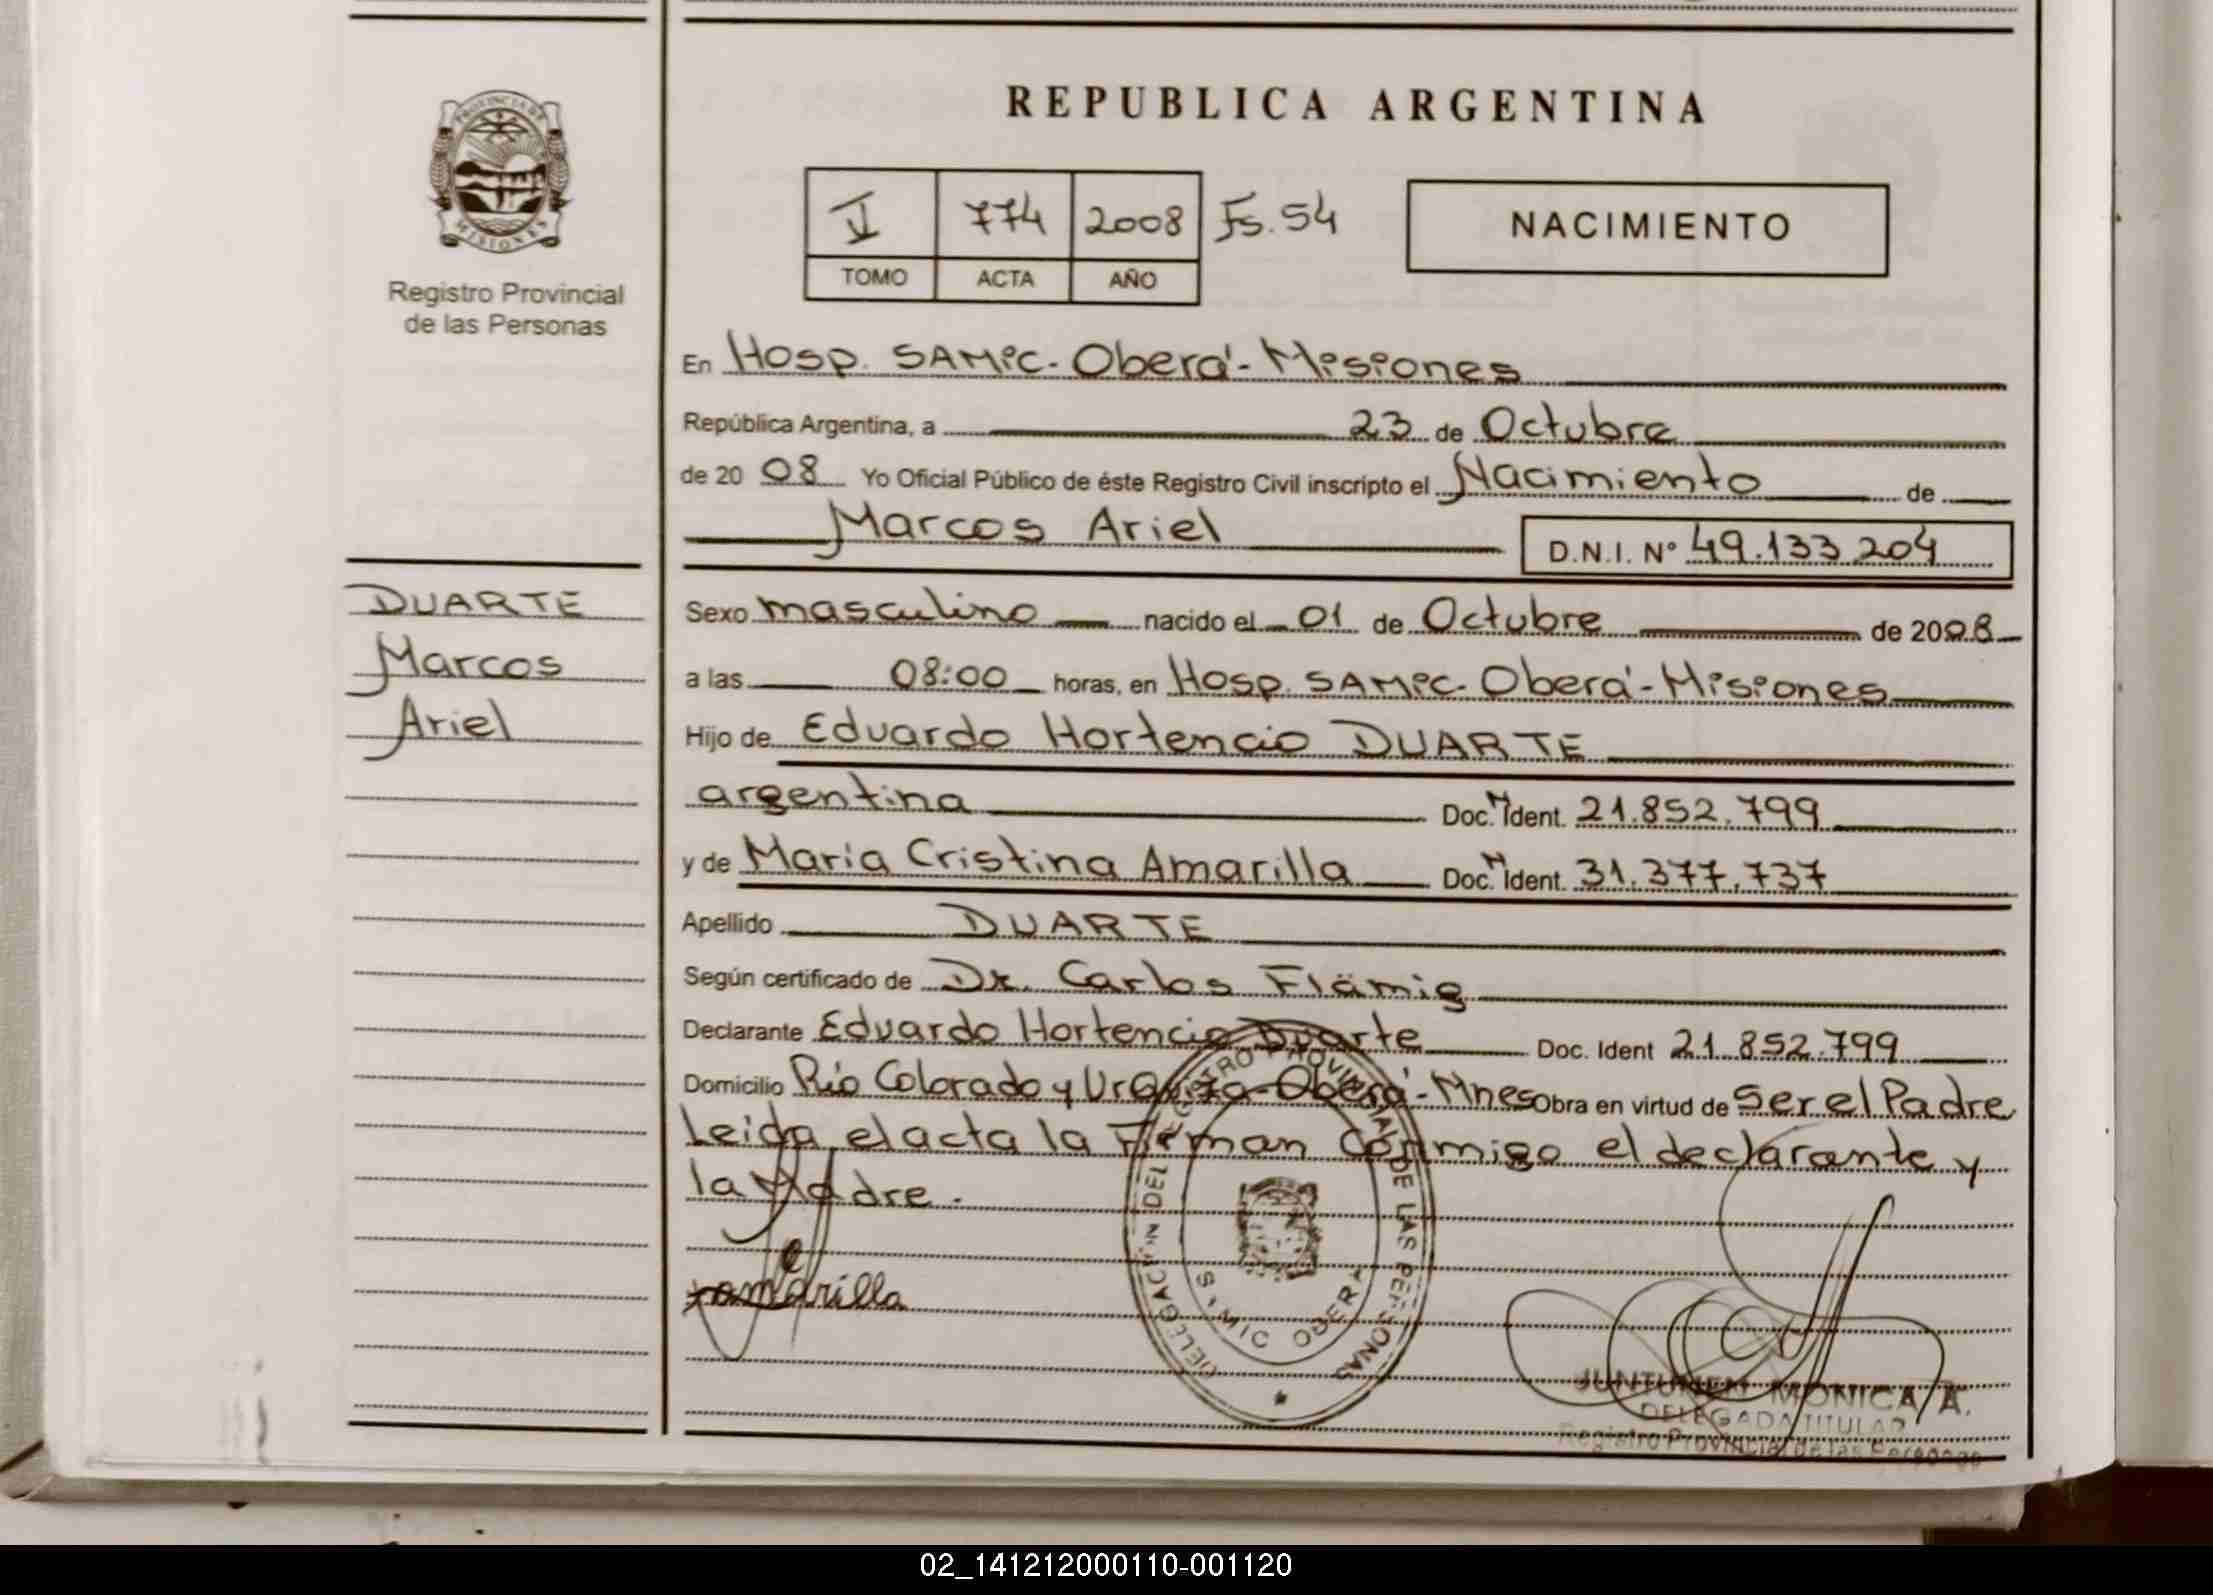 PROVINCIA DE
MISIONES
Registro Provincial
de las Personas
DUARTE
Marcos
Ariel
REPUBLICA ARGENTINA
II 774 2008 Fs. 54
TOMO ACTA AÑO
NACIMIENTO
En Hosp. SAMIC - Oberá - Misiones
República Argentina, a 23 de Octubre
de 2008 Yo Oficial Público de éste Registro Civil inscripto el Nacimiento de
Marcos Ariel D.N.I. Nº 49.133.204
Sexo masculino nacido el 01 de Octubre de 2008
a las 08:00 horas, en Hosp. SAMIC - Oberá - Misiones
Hijo de Eduardo Hortencio DUARTE
argentina Doc. N Ident. 21.852.799
y de Maria Cristina Amarilla Doc. N Ident. 31.377.737
Apellido DUARTE
Según certificado de Dr. Carlos Flämig
Declarante Eduardo Hortencio Duarte Doc. Ident 21.852.799
Domicilio Río Colorado y Urquiza - Oberá - Mnes Obra en virtud de Ser el Padre
Leida el acta la Firman conmigo el declarante y
la Madre.
DELEGACION DEL REGISTRO PROVINCIAL DE LAS PERSONAS
SAMIC OBERA
JUNTUNEN MONICA A.
DELEGADA TITULAR
Registro Provincial de las Personas
02_141212000110-001120